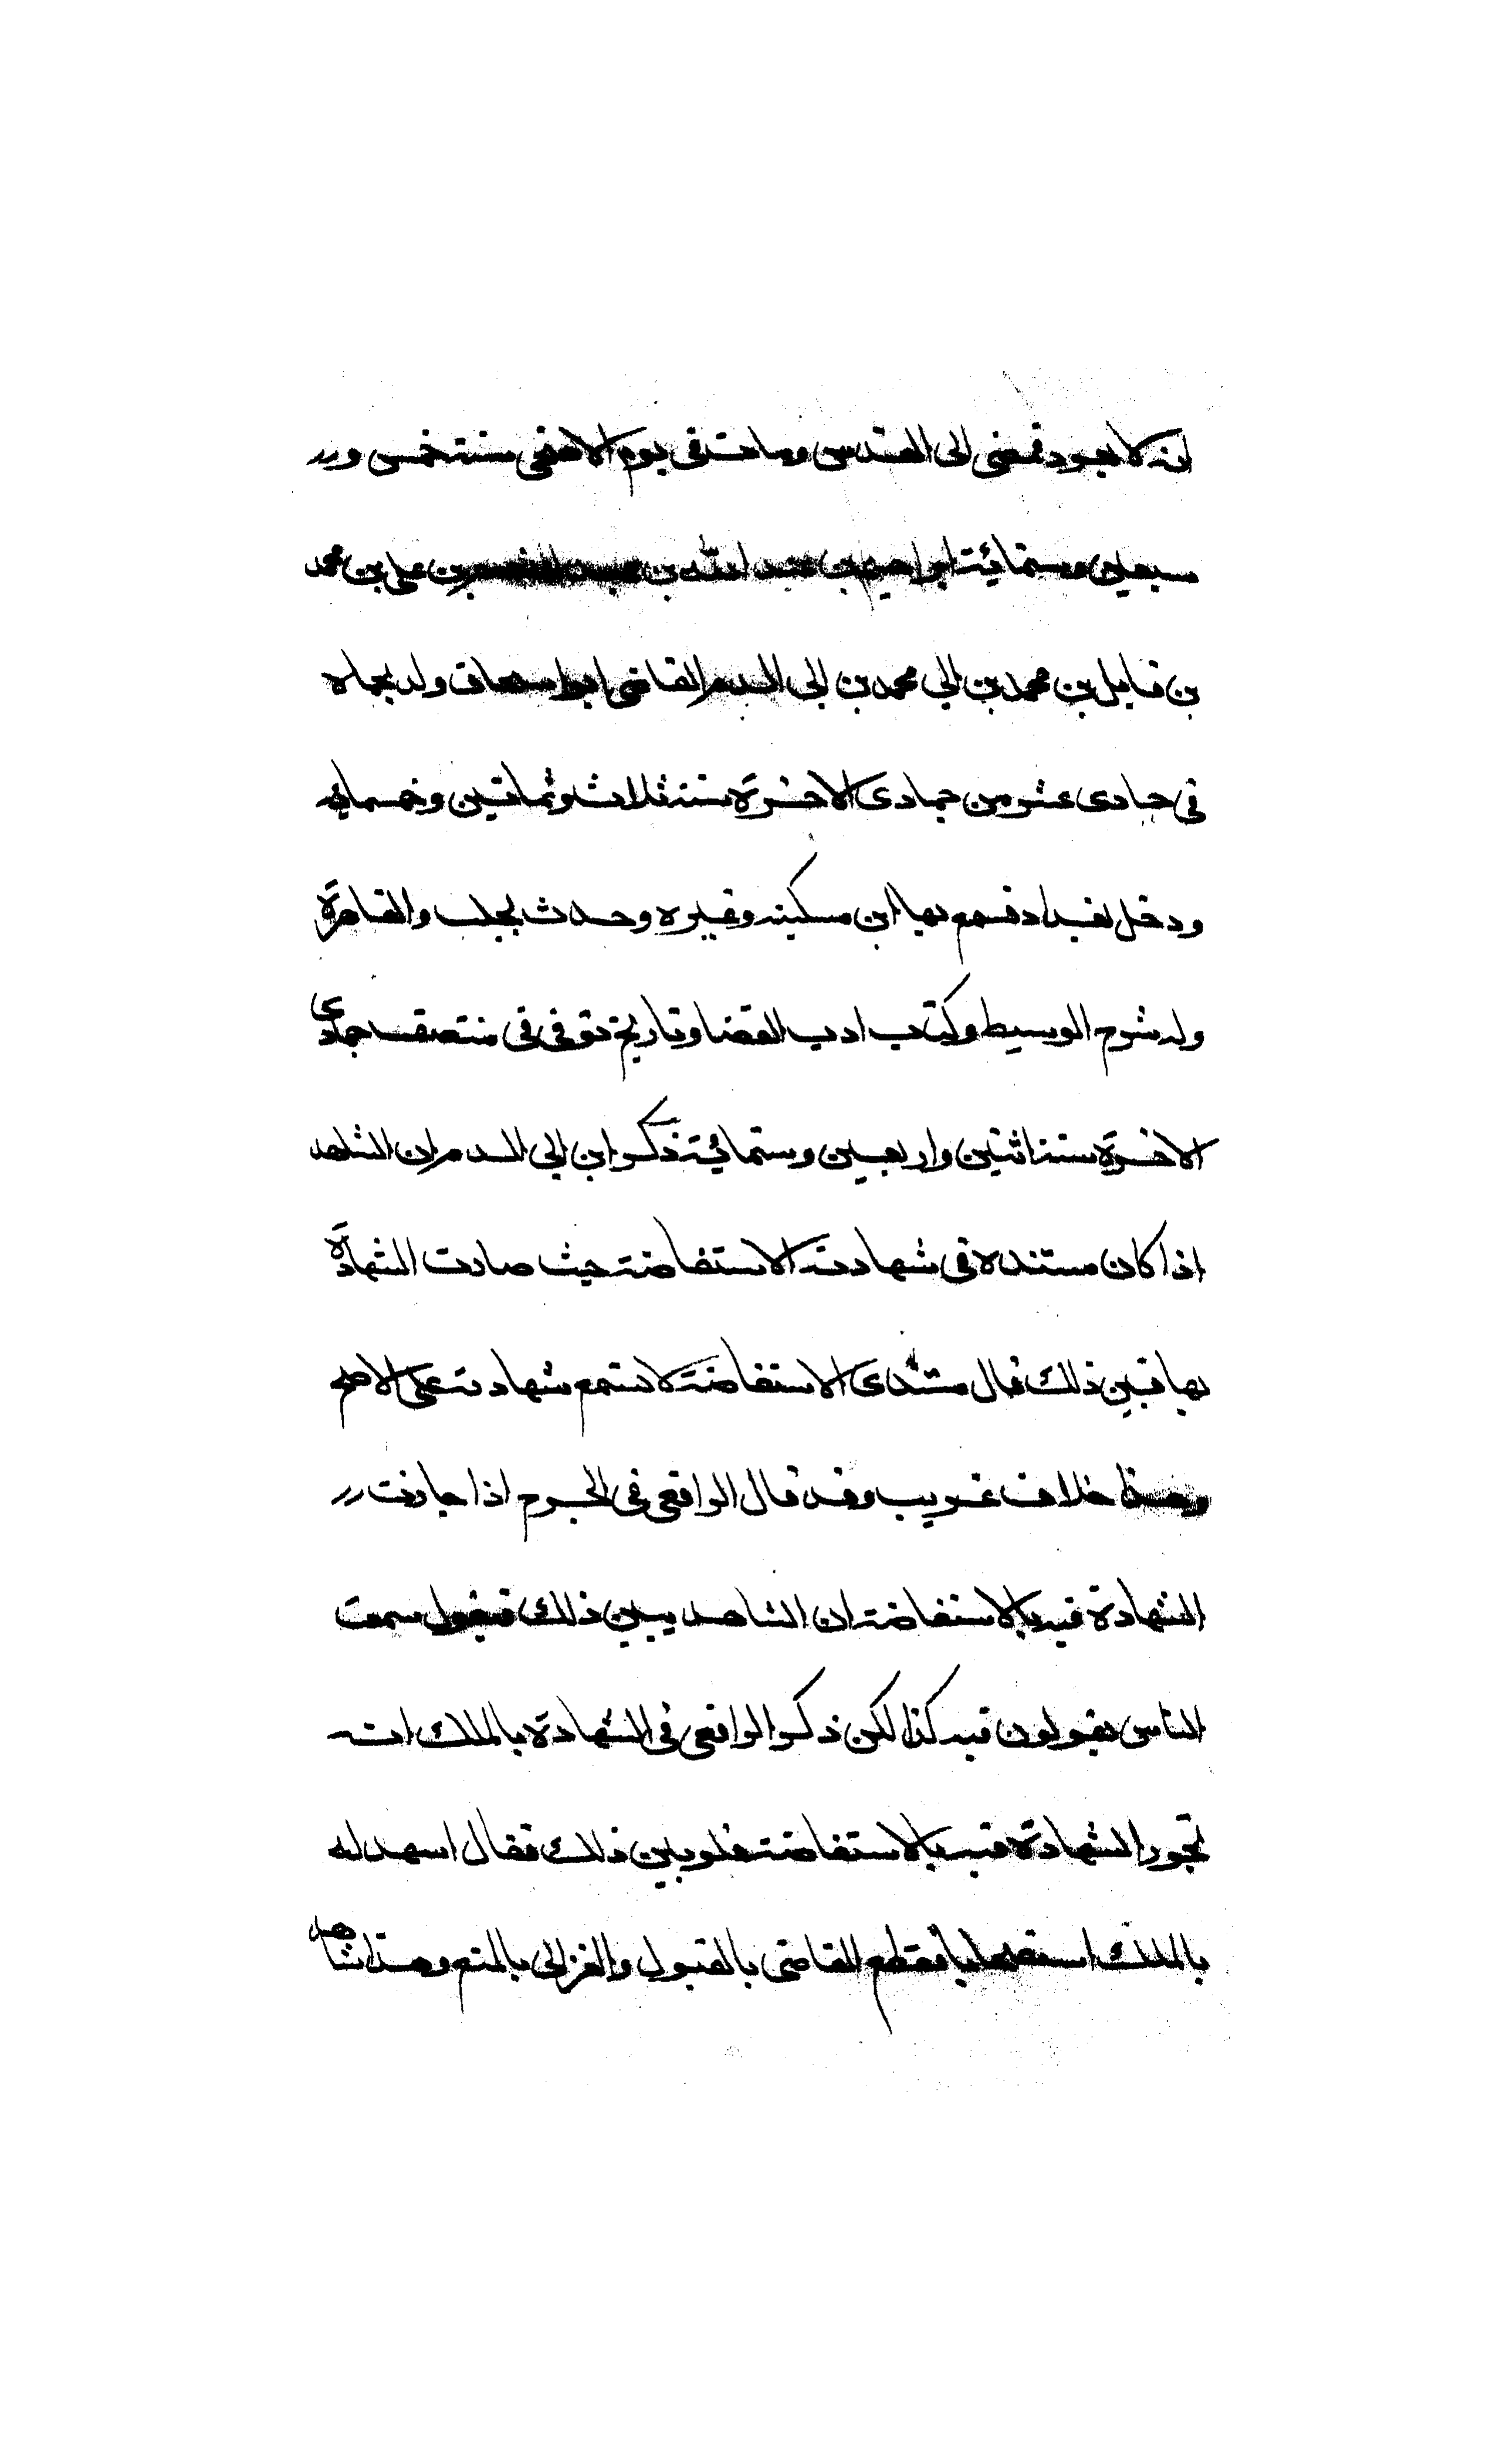 انه لا يعود فمضى الى القدس ومات فى يوم الاضحى سنة خمس و
سبعين وستمائة ابراهيم بن عبد الله بن عبد المنعم بن على بن محمد
بن فاتك بن محمد بن ابى محمد بن ابى الدم القاضى ابو اسحاق ولد بحماه
فى حادى عشر من جمادى الاخرة سنة ثلاث وثمانين وخمسمايه
ودخل بغداد فسمع بها ابن سكينه وغيره وحدث بحلب والقاهرة
وله شرح الوسيط وكتاب ادب القضا وتاريخ توفى فى منتصف جمادى
الاخرة سنة اثنين واربعين وستمائة ذكر ابن ابى الدم ان الشاهد
اذا كان مستنده فى شهادته الاستفاضة حيث صارت الشهادة
بها فبين ذلك فقال مستندى الاستفاضة لا تسمع شهادته على الاصح
وهذا خلاف غريب وقد قال الرافعى فى الجرح اذا جازت
الشهادة فيه بالاستفاضة ان الشاهد يبين ذلك فيقول سمعت
الناس يقولون فيه كذا لكن ذكر الرافعى فى الشهادة بالملك انه
تجوز الشهادة فيه بالاستفاضة فلو بين ذلك فقال اشهد له
بالملك استصحابا فقطع القاضى بالقبول والغزالى بالمنع وهذا شاهد